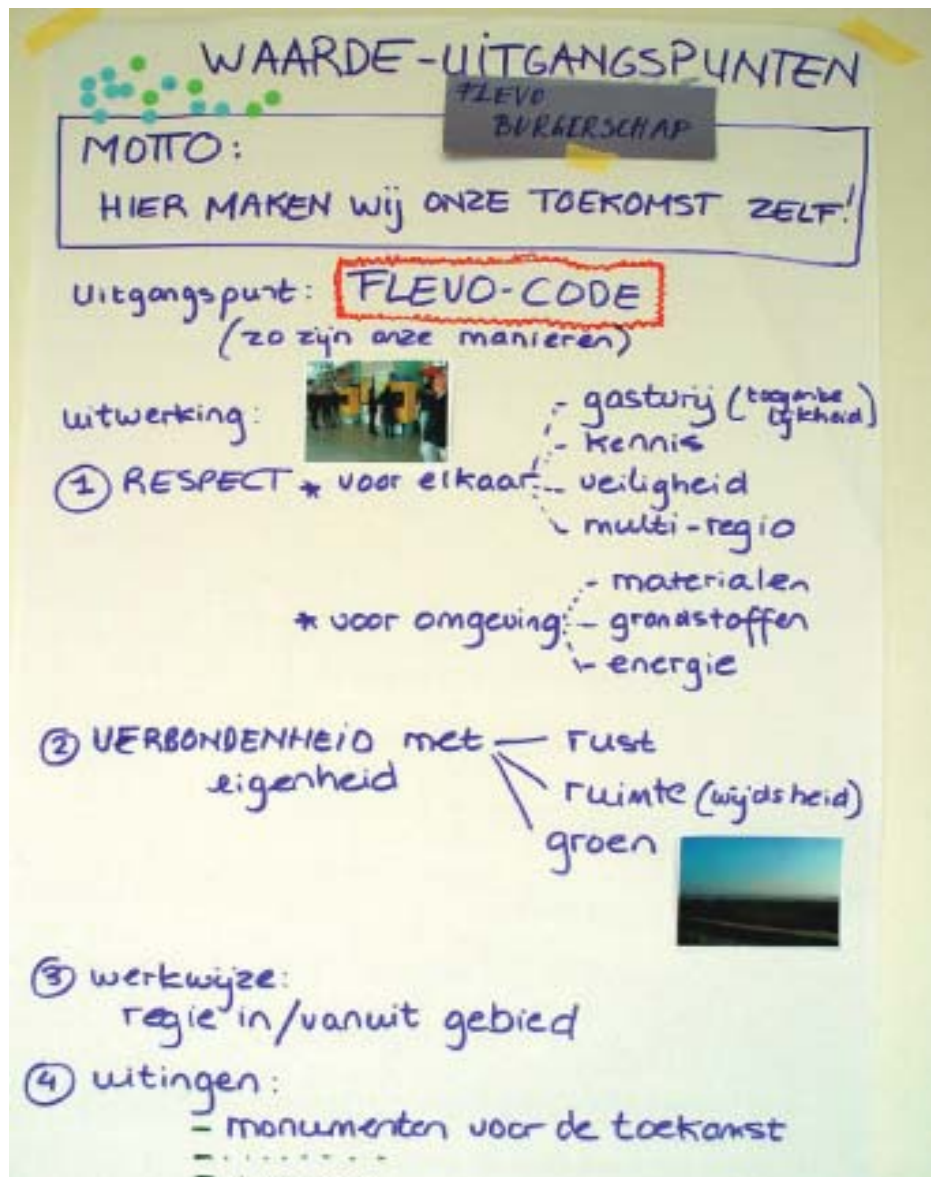 WAARDE-UITGANGSPUNTEN
FLEVO
BURGERSCHAP
MOTTO:
HIER MAKEN Wij ONZE TOEKOMST ZELF!
Uitgangspunt: FLEVO-CODE
(zo zijn onze manieren)
uitwerking:
① RESPECT * voor elkaar
- gastvrij (toegankelijkheid)
- kennis
- veiligheid
- multi-regio
* voor omgeving:
- materialen
- grondstoffen
- energie
② VERBONDENHEID met
eigenheid
rust
ruimte (wijdsheid)
groen
③ werkwijze:
regie in/vanuit gebied
④ uitingen:
- monumenten voor de toekomst
- . . . . . . . .